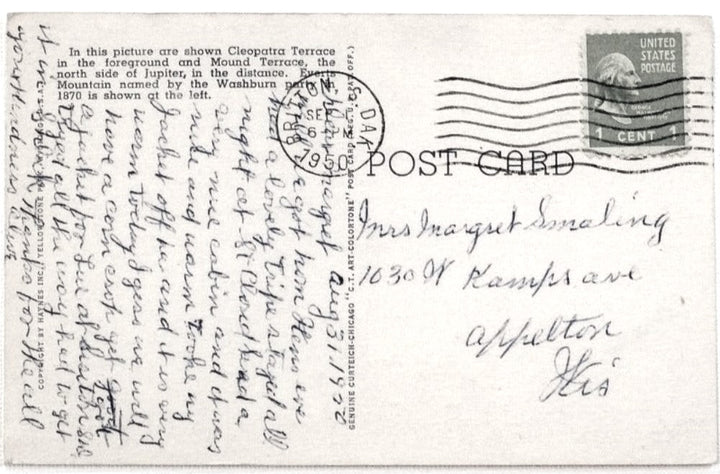 In this picture are shown Cleopatra Terrace
in the foreground and Mound Terrace, the
north side of Jupiter, in the distance. Everts
Mountain named by the Washburn party in
1870 is shown at the left.
UNITED
STATES
POSTAGE
1 CENT 1
BRITTON
S. DAK.
SEP
6
1950
POST CARD
Mrs Margret Smaling
1030 W Kamps ave
Appelton
Wis
Aug 31, 1950
Margret
we got home
had a lovely Trip stayed all
night at St Cloud had a
very nice cabin and it was
nice and warm Took my
Jacket off here and it is very
warm Today I gess we will
have a corn crop yet
a jacket for
all the way had to get
it
Thanks for
COPYRIGHT BY HAYNES INC., YELLOWSTONE
GENUINE CURTEICH-CHICAGO "C. T. ART-COLORTONE" POST CARD (REG. U. S. PAT. OFF.)